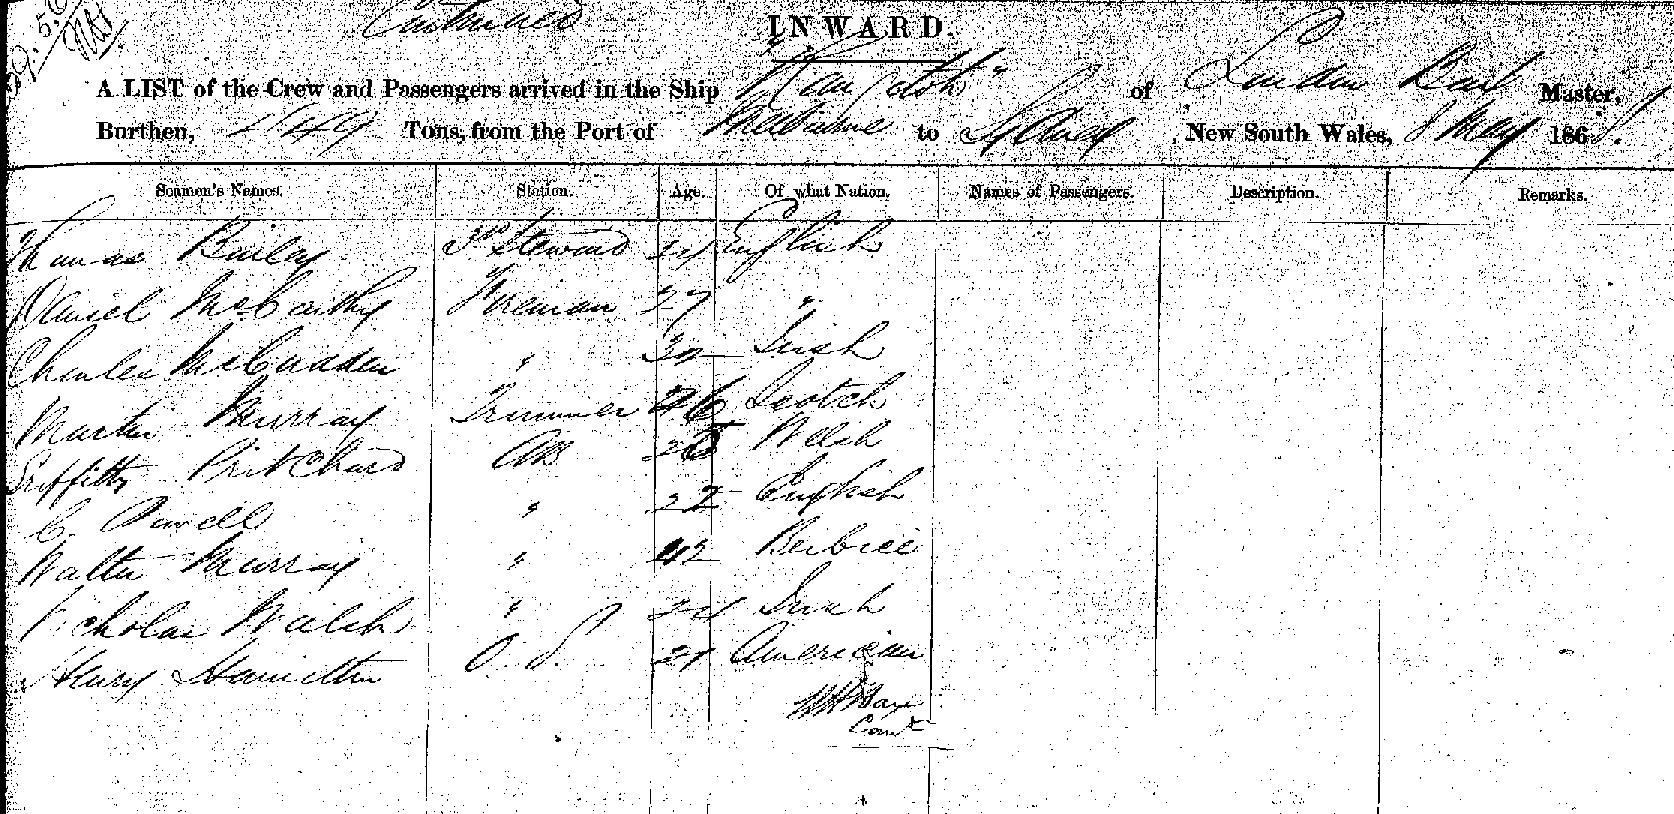 Continued
INWARD.
A LIST of the Crew and Passengers arrived in the Ship "Rangatoto" of London Master,
Burthen, Tons, from the Port of Melbourne to Sydney New South Wales, 8 May 1868.
Seamen's Names. Station. Age. Of what Nation. Names of Passengers. Description. Remarks.
Thomas Bailey Steward 24 English
Daniel McCarthy Fireman 27 "
Charles McCudden " 30 Irish
Martin Murray Trimmer 46 Scotch
Griffith Pritchard AB Welsh
C. " 22 English
Walter Murray " 42 Berbice
Nicholas Walsh " 24 Irish
Henry Hamilton O. S. 21 American